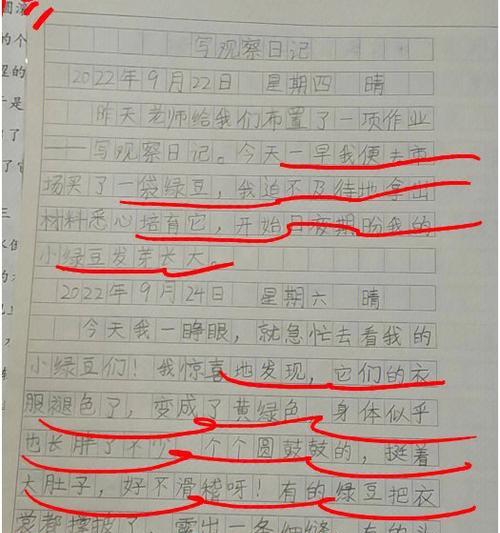 写观察日记
2022年9月22日 星期四 晴
昨天老师给我们布置了一项作业
——写观察日记。今天一早我便去市
场买了一袋绿豆，我迫不及待地拿出
材料悉心培育它，开始日夜期盼我的
小绿豆发芽长大。
2022年9月24日 星期六 晴
今天我一睁眼，就急忙去看我的
小绿豆们！我惊喜地发现，它们的衣
服褪色了，变成了黄绿色，身体似乎
也长胖了不少，个个圆鼓鼓的，挺着
大肚子，好不滑稽呀！有的绿豆把衣
裳都撑破了，露出一条细缝，有的头